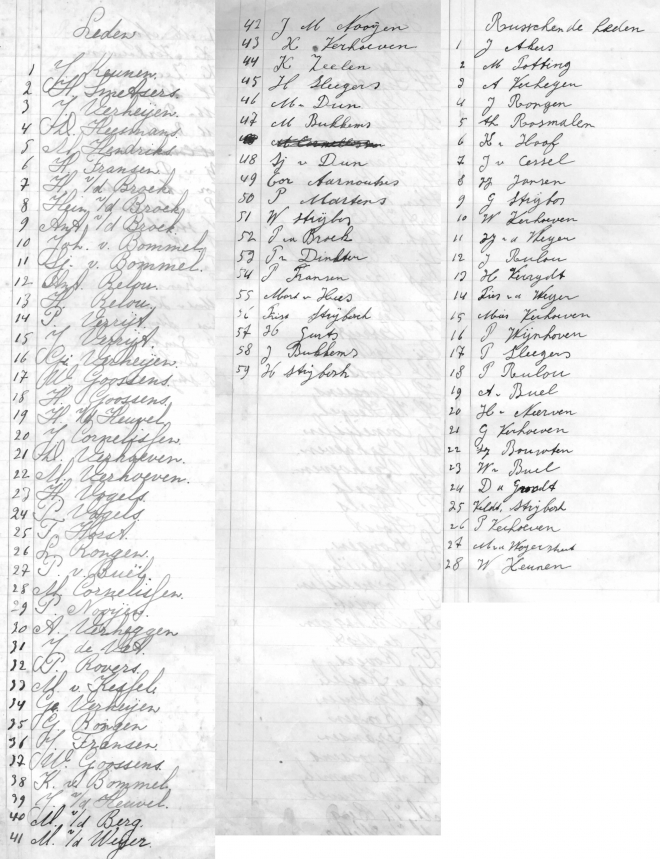 Leden
1 J. Keunen.
2 H. Smetsers.
3 J. Verheijen.
4 W. Huijsmans.
5 M. Hendriks.
6 H. Fransen.
7 H. v/d Broek.
8 Hein. v/d Broek.
9 Ant. v/d Broek.
10 Joh. v. Bommel.
11 Sj. v. Bommel.
12 Ant. Relou.
13 H. Relou.
14 P. Verrijt.
15 J. Verrijt.
16 Gi. Verheijen.
17 W. Goossens.
18 H. Goossens.
19 H. v/d Heuvel.
20 J. Cornelissen.
21 W. Verhoeven.
22 M. Verhoeven.
23 H. Vogels.
24 P. Vogels.
25 T. Horst.
26 L. Rongen.
27 P. v. Buël.
28 M. Cornelissen.
29 P. Nooijen.
30 A. Verheggen
31 J. de Vat.
32 P. Rovers.
33 M. v. Kessel.
34 Ge. Verheijen
35 G. Rongen
36 J. Fransen.
37 W. Goossens.
38 K. v. Bommel.
39 J. v/d Heuvel.
40 M. v/d Berg.
41 M. v/d Weijer.
42 J M Nooijen
43 K. Verhoeven
44 K Zeelen
45 H Sleegers
46 M v Dun
47 M Bukkems
48 Sj v Dun
49 Cor Aarnoutus
50 P Martens
51 W Strijbos
52 P v a Broek
53 P v Dinther
54 P Fransen
55 Mart v Hees
56 Frisa Strijbosch
57 H Gerits
58 J Bukkems
59 H Strijbosch
Russchende Leden
1 J Akers
2 M Totting
3 A Verhegen
4 J Rongen
5 Ah Rosmalen
6 K v Hoof
7 J v Cessel
8 Jansen
9 G Strijbos
10 W Verhoeven
11 v d Weyer
12 J Rulou
13 H Verrydt
14 Fries v d Weyer
15 Mar Verhoeven
16 P Wijnhoven
17 T Sleegers
18 P Rulou
19 A v Buel
20 H v Neerven
21 G Verhoeven
22 Bouwten
23 W v Buel
24 D v Groodt
25 Strijbosch
26 P Verhoeven
27 M v a
28 W Heunen